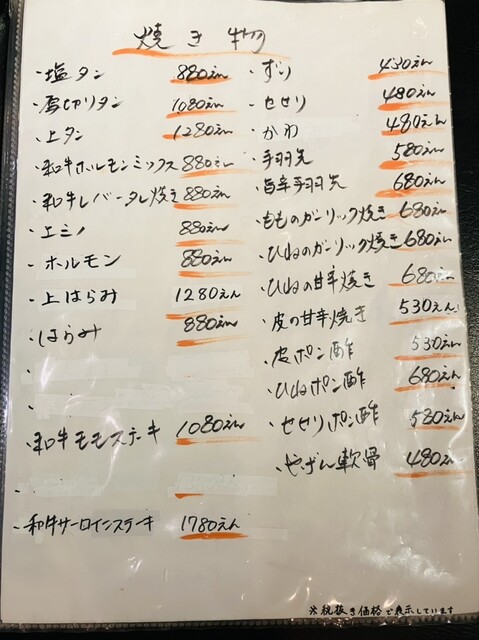 焼き物
・塩タン 880えん
・厚切りタン 1,080えん
・上タン 1280えん
・和牛ホルモンミックス 880えん
・和牛レバータレ焼き 880えん
・ミノ 880えん
・ホルモン 880えん
・上はらみ 1280えん
・はらみ 880えん
・和牛モモステーキ 1080えん
・和牛サーロインステーキ 1780えん
・ずり 430えん
・せせり 480えん
・かわ 480えん
・手羽先 580えん
・旨辛手羽先 680えん
・もものガーリック焼き 680えん
・ひねのガーリック焼き 680えん
・ひねの甘辛焼き 680えん
・皮の甘辛焼き 530えん
・皮ポン酢 530えん
・ひねポン酢 680えん
・せせりポン酢 580えん
・やげん軟骨 480えん
※税抜き価格で表示しています